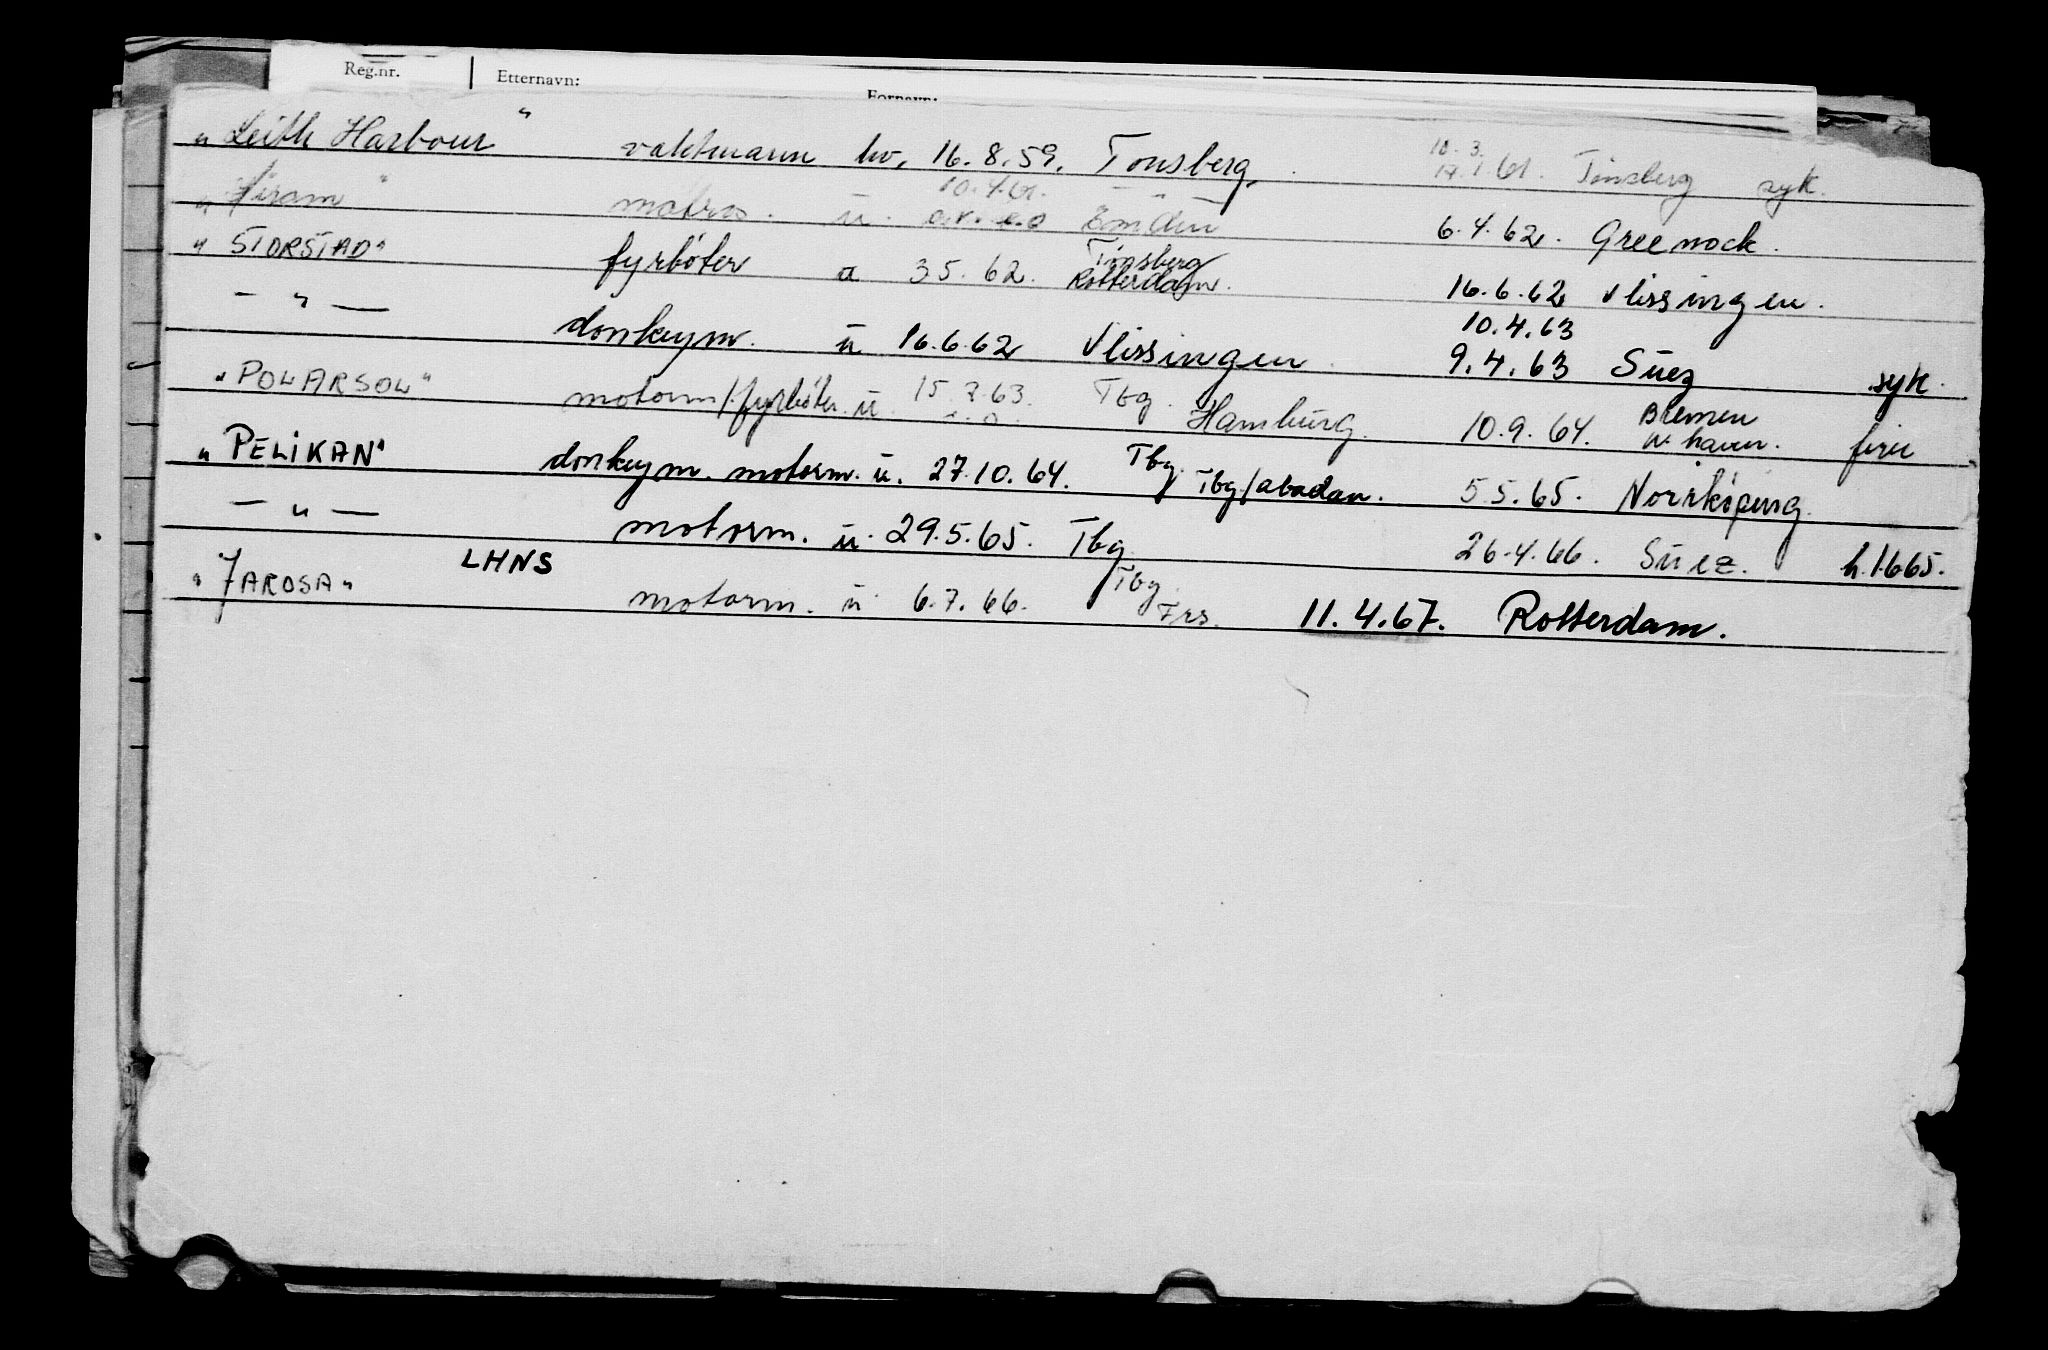 Reg.nr. Etternavn: Fornavn:
"Leith Harbour" vaktmann hv. 16.8.59. Tønsberg. 10.3. 61. Tønsberg syk.
"Hiram" matros. u. 10.4.61. Emden 6.4.62. Greenock.
"STORSTAD" fyrbøter a 3 5. 62. Tønsberg Rotterdam. 16.6.62 Vlissingen.
— " — donkeym. u 16.6.62 Vlissingen. 10.4.63 9.4.63 Suez syk.
"POLARSOL" motorm/fyrbøter. u 15. 7.63. Tbg. Hamburg. 10.9.64. Bremen havn. ferie
"PELIKAN" donkeym. motorm. u. 27.10.64. Tbg. Tbg/abadan. 5.5.65. Norrköping.
— " — motorm. u. 29.5.65. Tbg. 26.4.66. Suez. h.1665.
"JAROSA" LHNS motorm. u 6.7.66. Tbg. Frs. 11.4.67. Rotterdam.